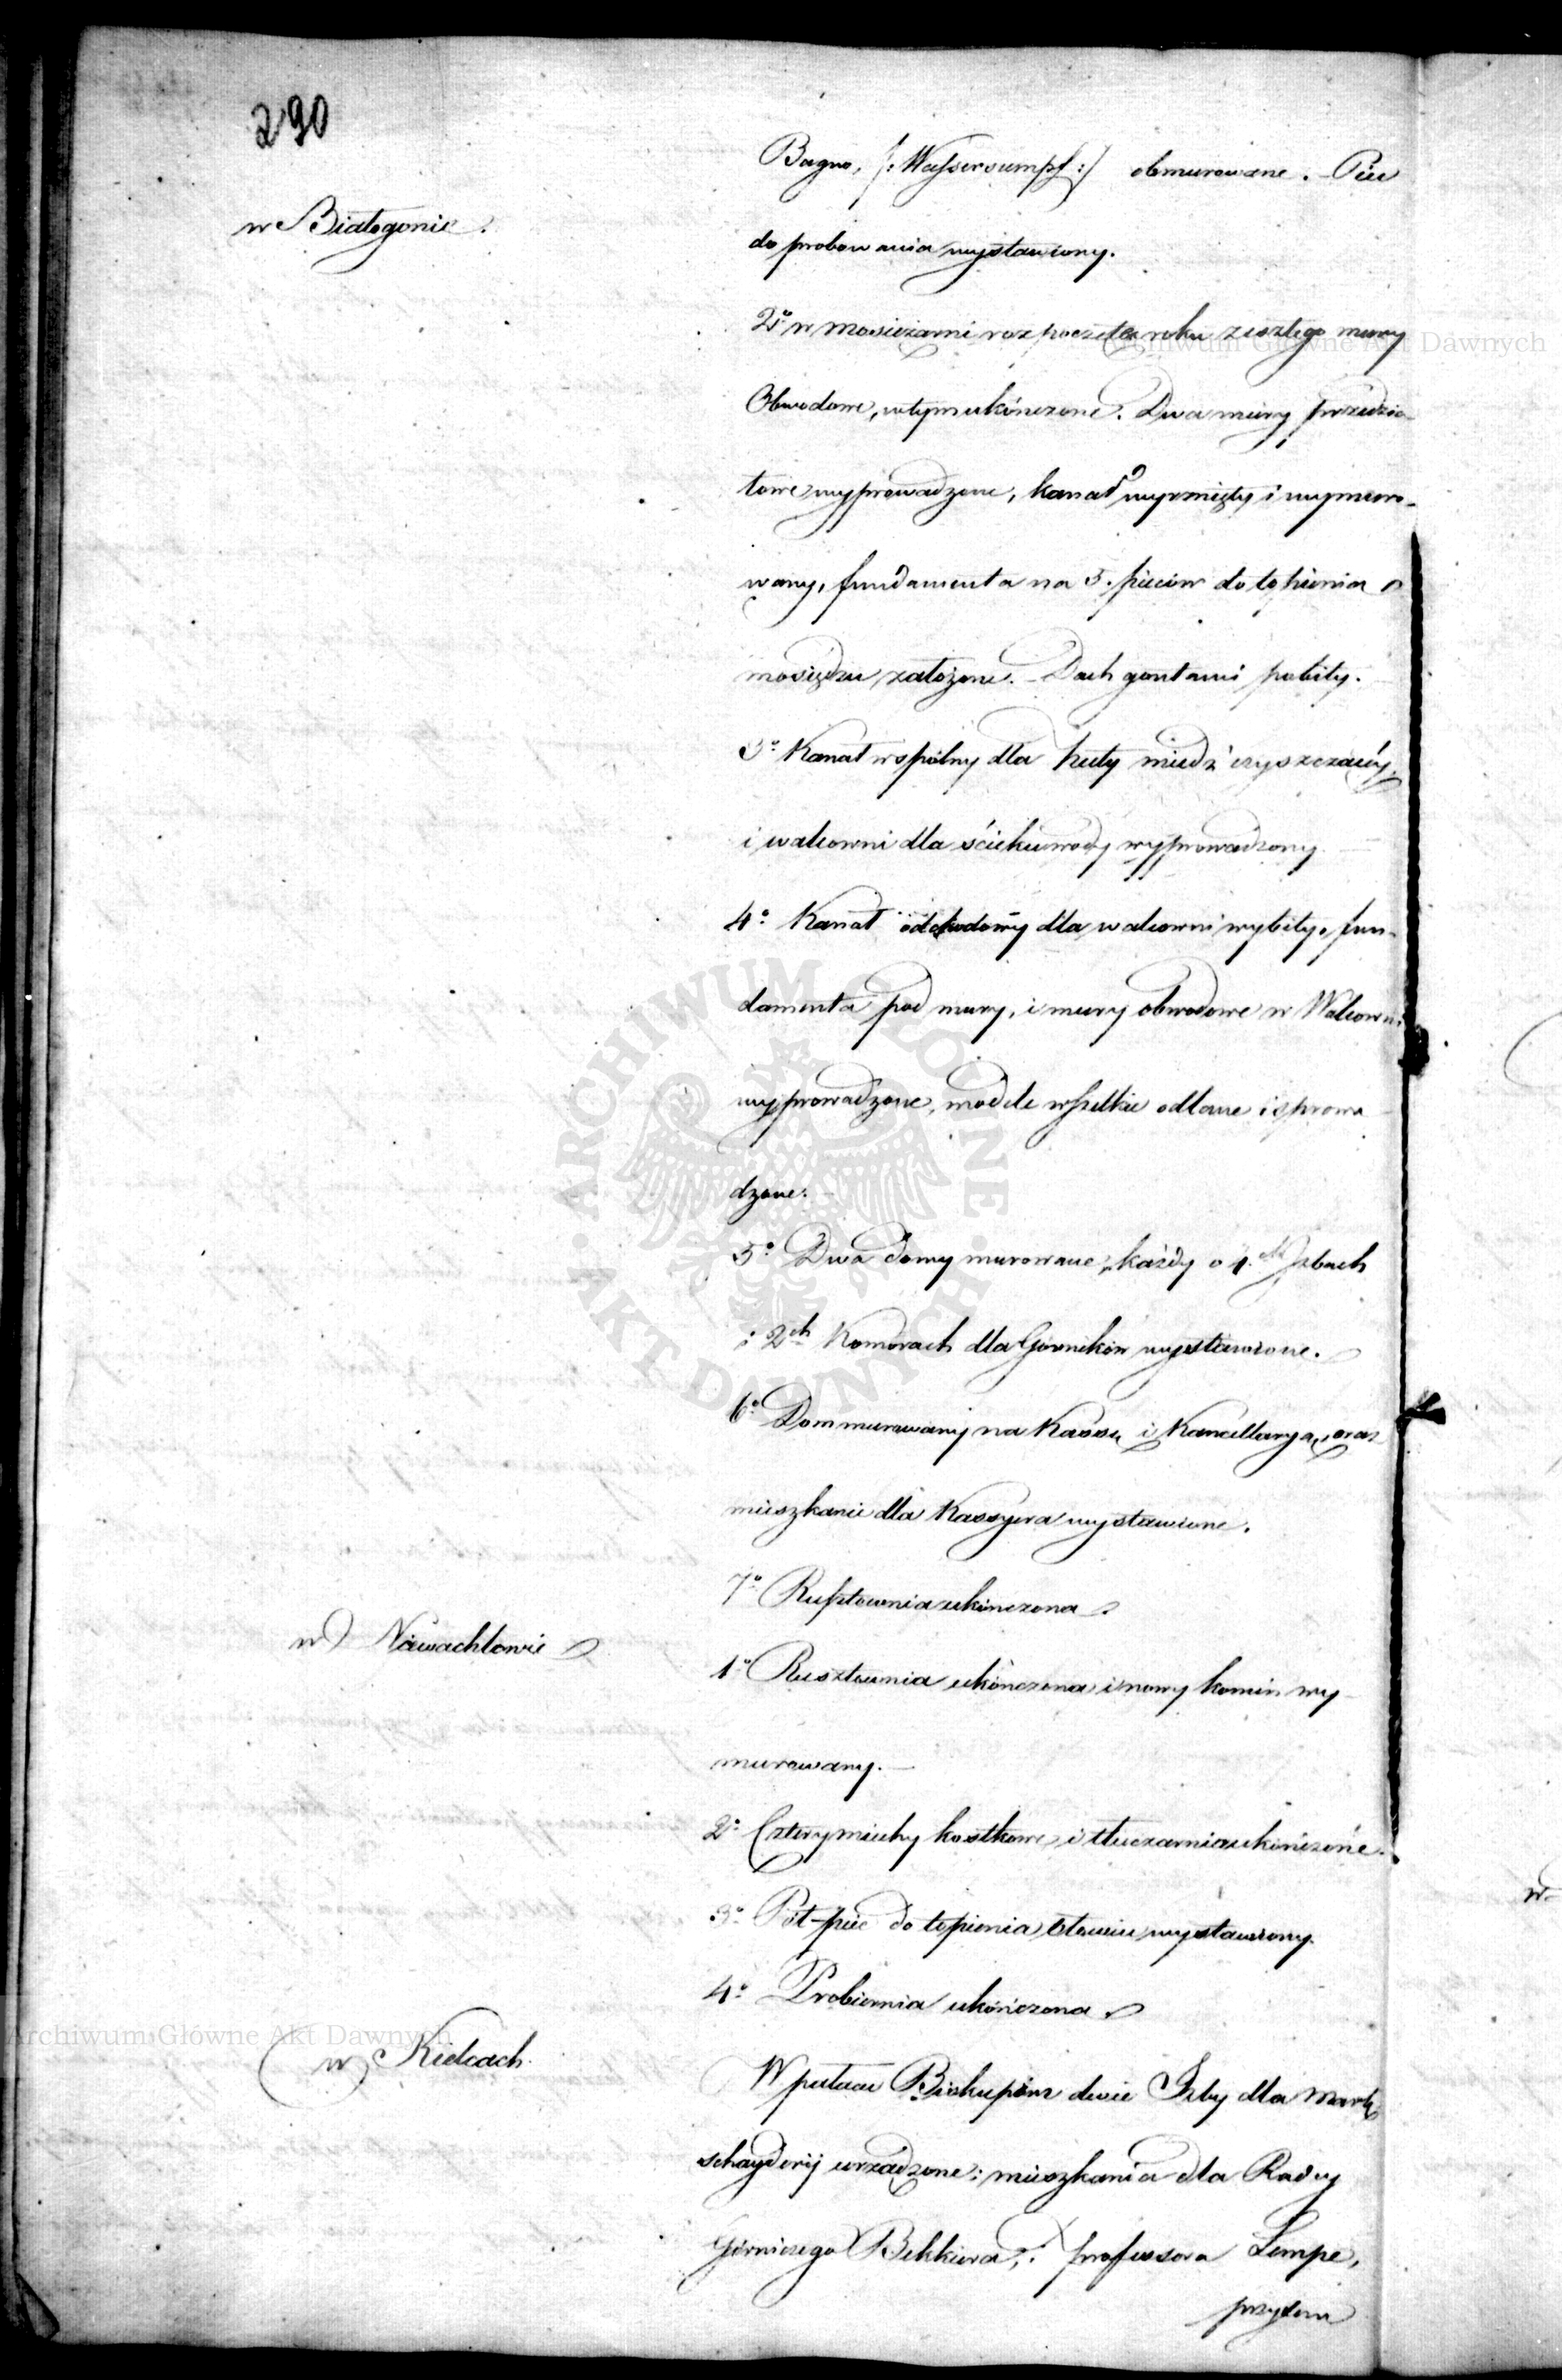 290
w Białogonie.
Bagno, /: Wassersumpf :/ obmurowane. Piec
do probowania wystawiony.
2o w mosieżarni rozpoczęte roku zeszłego mury
Obwodowe, w tym ukończone. Dwa mury przedzia-
łowe wyprowadzone, kanał wyrznięty i wymuro-
wany, fundamenta na 5. pieców do topienia
mosiądzu założone. Dach gontami pobity.
3o Kanał wspólny dla huty miedź czyszczącéy,
i walcowni dla ścieku wody wyprowadzony
4o Kanał odchodowy dla walcowni wybity, fun-
damenta pod mury, i mury obwodowe w Walcowni
wyprowadzone, modele wszelkie odlane i sprowa
dzone.
5o Dwa domy murowane, każdy o 4.ch Izbach
i 2ch Komorach dla Górników wystawione.
6o Dom murowany na Kassę i Kancellaryą, oraz
mieszkanie dla Kassyera wystawione.
7o Rusztownia ukończona.
w Niewachlowie
1o Rusztownia ukończona i nowy komin wy-
murowany.
2o Cztery miechy kostkowe i tłuczarnia ukończone.
3o Pół-piec do topienia ołowiu wystawiony.
4o Probiernia ukończona.
w Kielcach.
W pałacu Biskupim dwie Izby dla Mark
schayderij urządzone; mieszkania dla Radcy
Górniczego Bekkiera, i professora Lempe,
przytem
w
Archiwum Główne Akt Dawnych
Archiwum Główne Akt Dawnych
ARCHIWUM GŁÓWNE AKT DAWNYCH